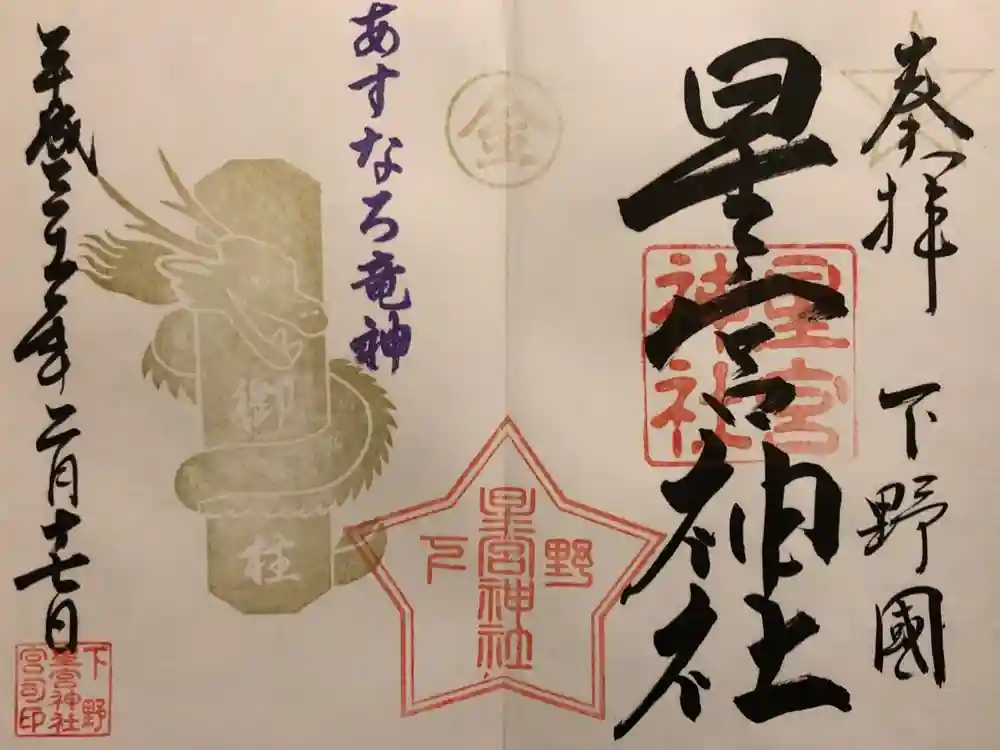 奉拝 下野國
星宮神社
星宮神社
金
下野
星宮神社
あすなろ竜神
御柱
平成三十一年二月十七日
下野
星宮神社
宮司印